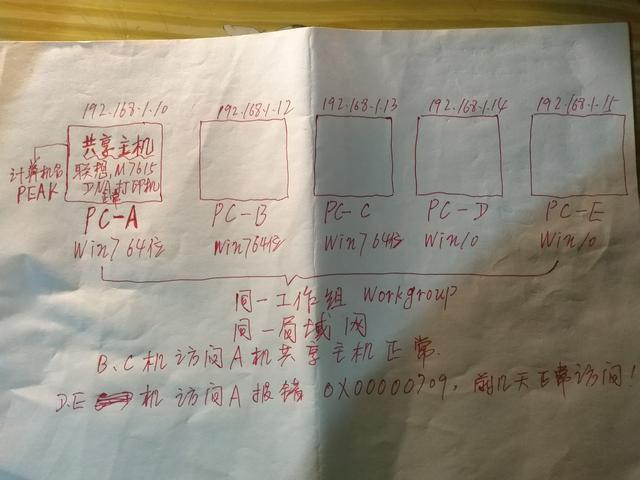 192.168.1.10 192.168.1.12 192.168.1.13 192.168.1.14 192.168.1.15
计算机名
PEAK
共享主机
联想M7615
DNA打印机
PC-A PC-B PC-C PC-D PC-E
Win7 64位 Win7 64位 Win7 64位 Win10 Win10
同一工作组 Workgroup
同一局域网
B、C机访问A机共享主机正常.
D.E 机访问A报错 0X00000709, 前几天正常访问!